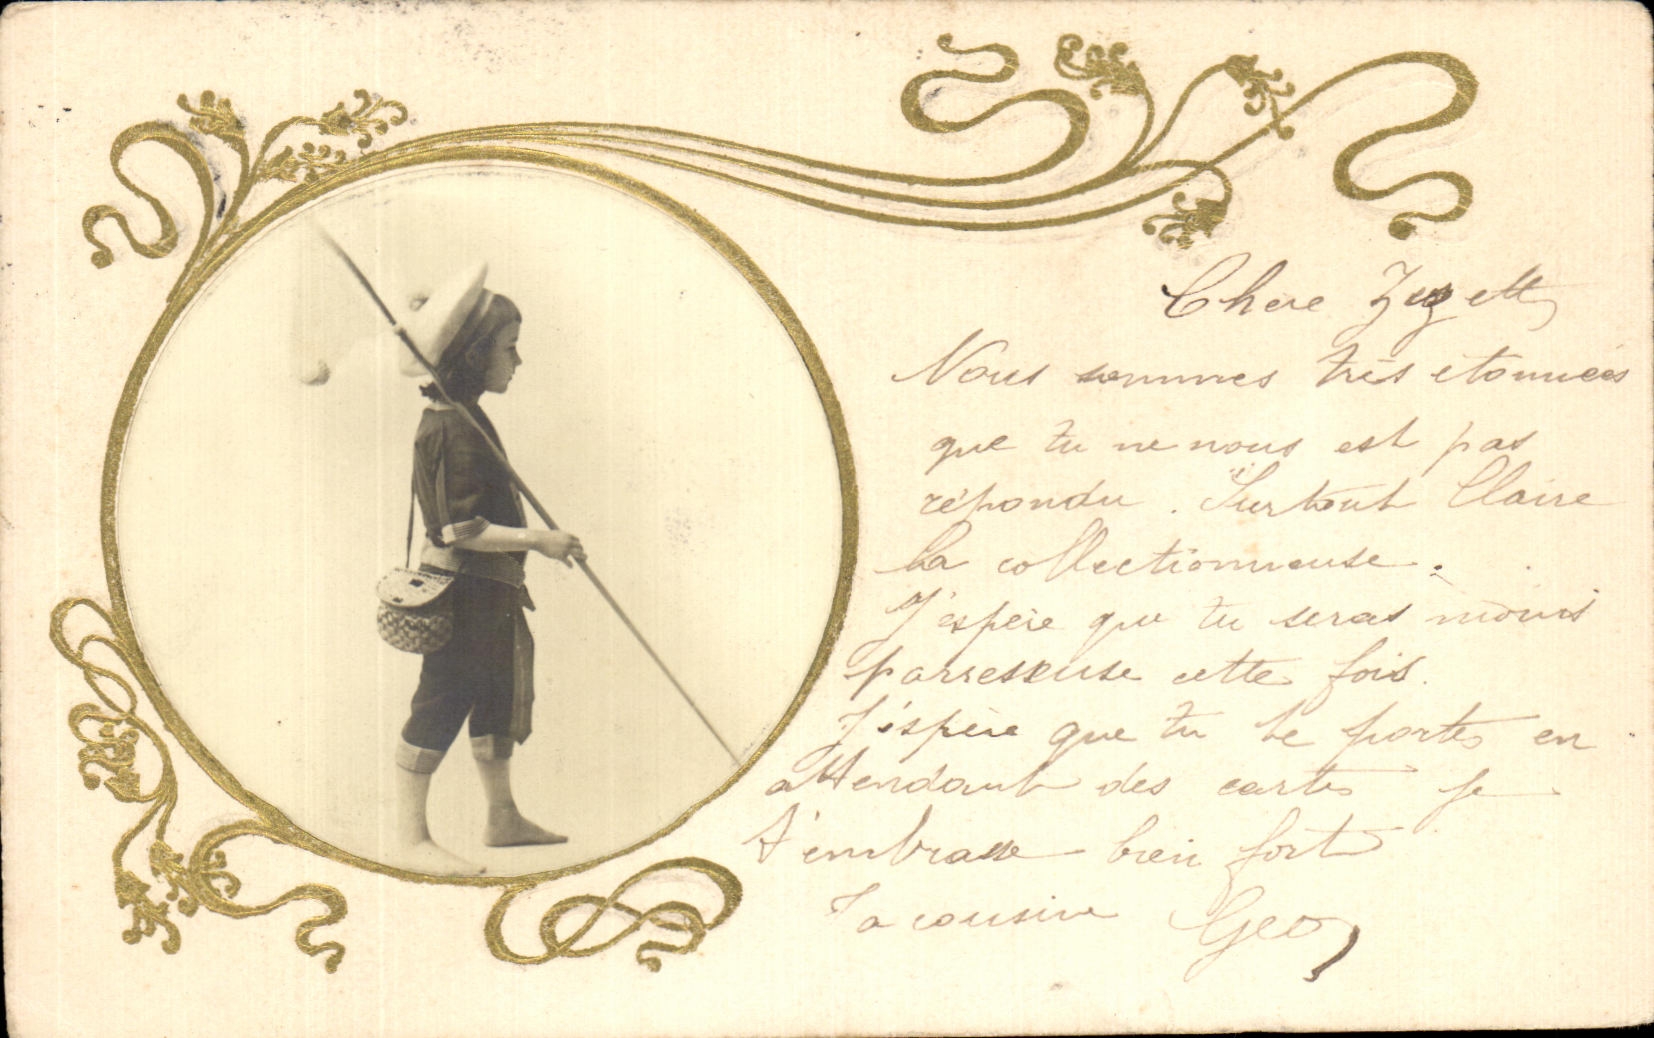 Chère Zezette
Nous sommes très étonnées
que tu ne nous est pas
répondu. Surtout Claire
la collectionneuse.
J'espère que tu seras moins
parresseuse cette fois.
J'éspère que tu te portes en
attendant des cartes je
t'embrasse bien fort
Ta cousine Geo